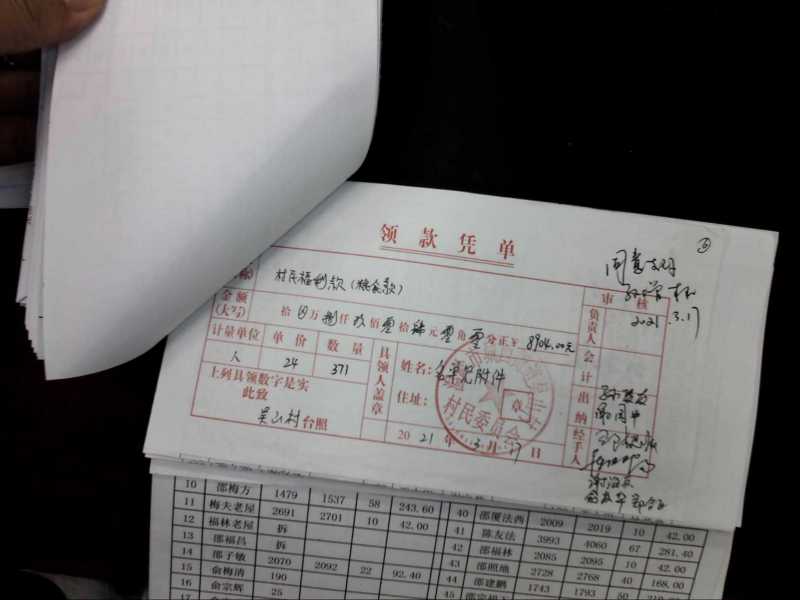 领款凭单
⑤
同意支付
2021.3.17
村民福利款(粮食款)
金额(大写) 拾⊗万捌仟玖佰零拾肆元零角零分正¥ 8904.00元
计量单位 单价 数量
人 24 371
上列具领数字是实
此致
吴山村台照
具领人盖章
姓名: 名单见附件
住址:
章
村民委员会
2021年3月17日
审核
负责人
会计
出纳
经手人
10 邵梅方 1479 1537 58 243.60
11 梅夫老屋 2691 2701 10 42.00
12 福林老屋 拆
13 邵福昌 拆
14 邵子敏 2070 2092 22 92.40
15 俞梅清 190
16 俞宗辉 25
17
40 邵厦法西 2009 2019 10 42.00
41 陈友法 3993 4060 67 281.40
42 邵福林 2085 2095 10 42.00
43 邵照地 2728 2768 40 168.00
44 邵建鹏 1743 1793 50
45